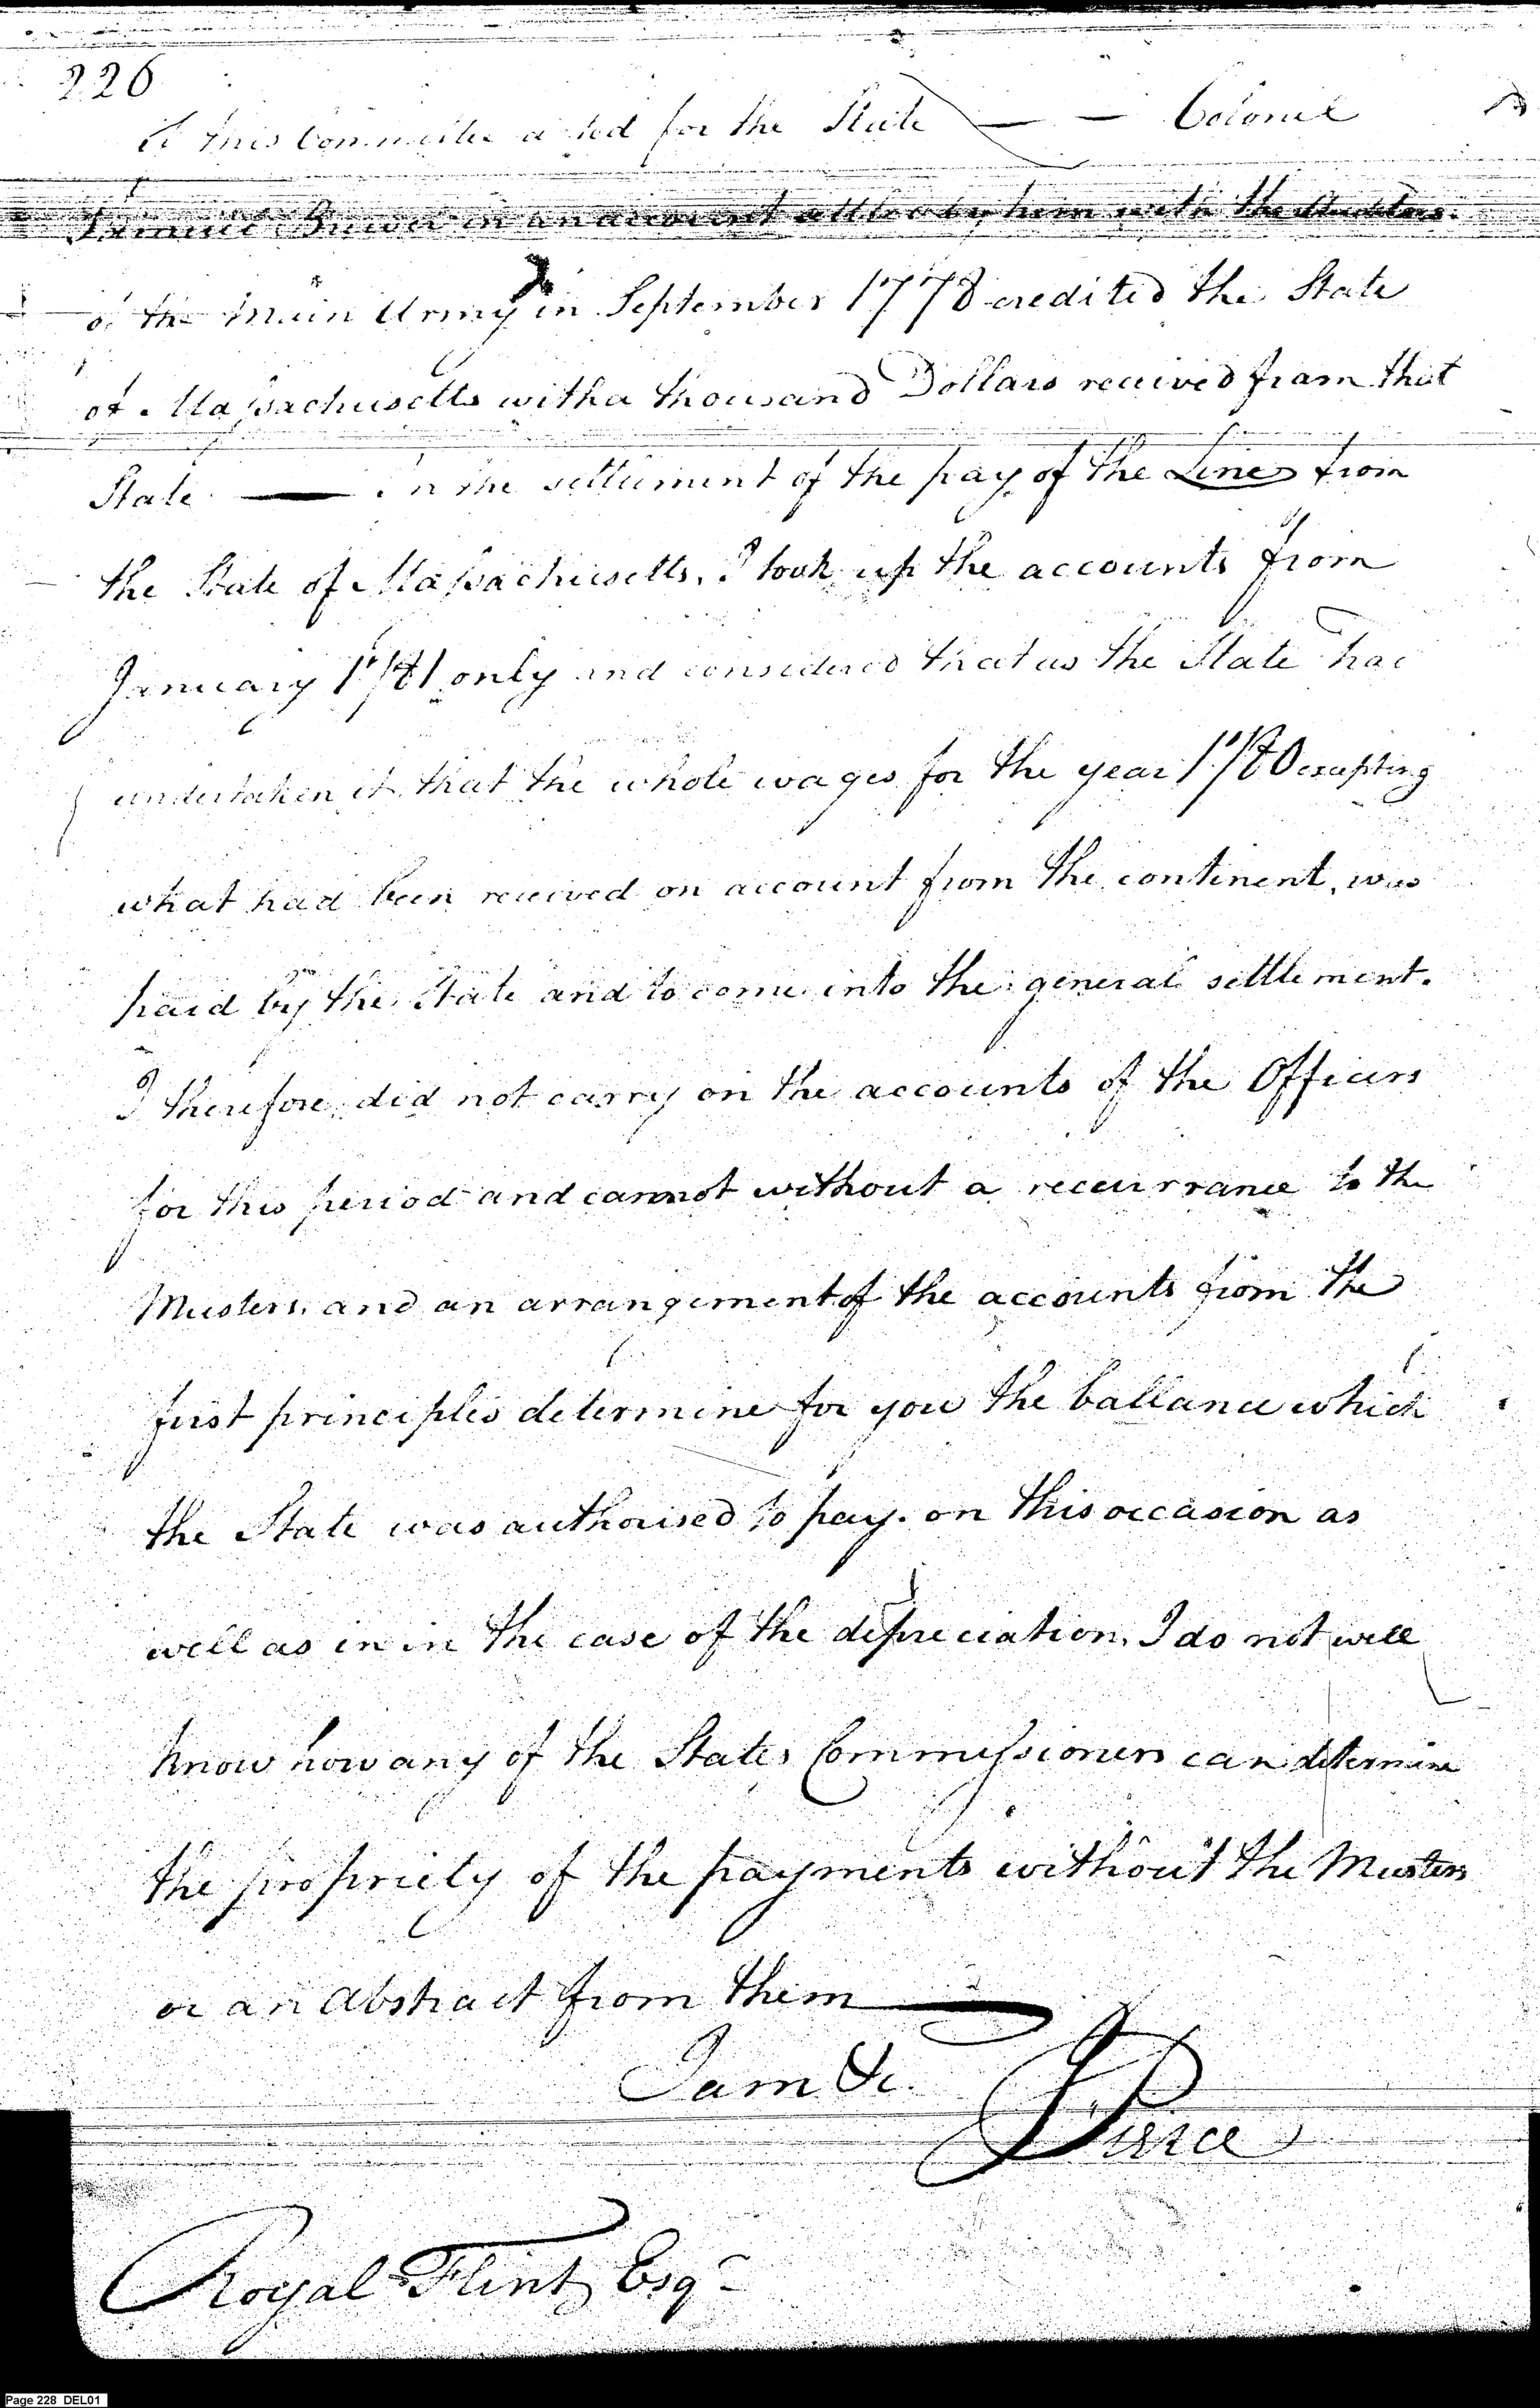 226
this Committee acted for the State — — Colonel
in an account settled by him with the Auditors
of the main Army in September 1778 credited the State
of Massachusetts with a thousand Dollars received from that
State. — In the settlement of the pay of the Lines from
the State of Massachusetts, I took up the accounts from
January 1781 only and considered that as the State had
undertaken it that the whole wages for the year 1780 excepting
what had been received on account from the continent, was
paid by the State and to come into the general settlement.
I therefore did not carry on the accounts of the Officers
for this period and cannot without a recurrance to the
Musters and an arrangement of the accounts from the
first principles determine for you the ballance which
the State was authorised to pay. on this occasion as
well as in in the case of the depreciation, I do not well
know how any of the States Commissioners can determine
the propriety of the payments without the Musters
or an Abstract from them —
I am &c.
J Pierce
Royal Flint Esqr
Page 228 DEL01